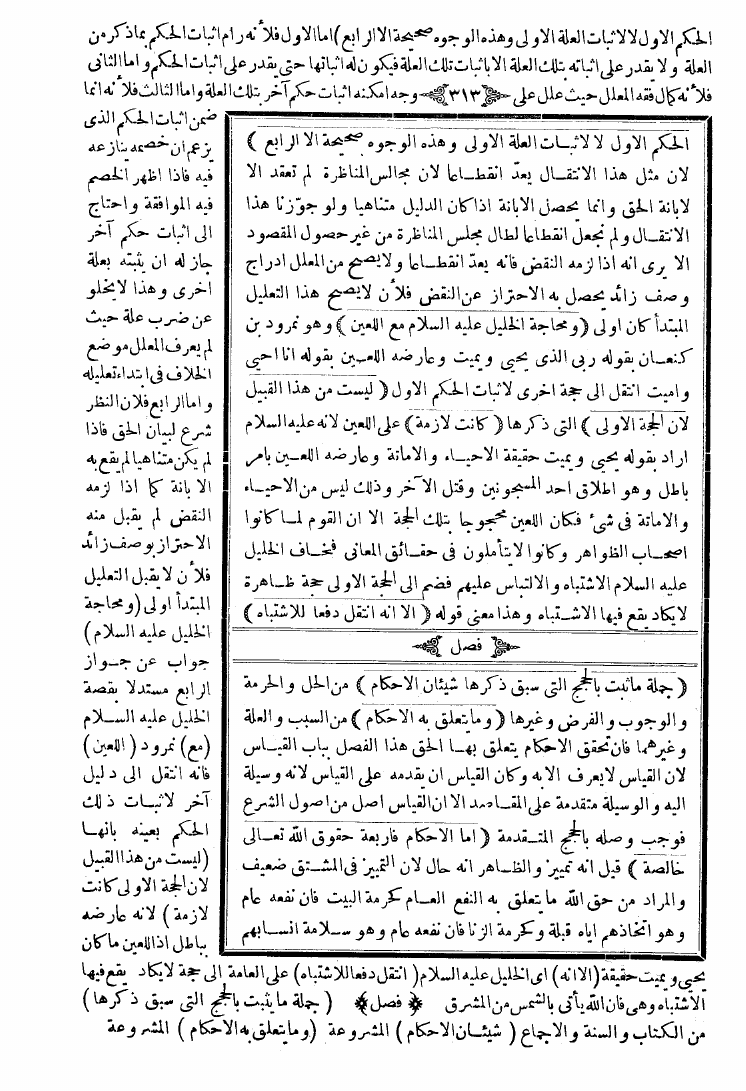 الحكم الاول لا لاثبات العلة الاولى وهذه الوجوه صحيحة الا الرابع) اما الاول فلأنه رام اثبات الحكم بما ذكر من
العلة ولا يقدر على اثباته بتلك العلة الا باثبات تلك العلة فيكون له اثباتها حتى يقدر على اثبات الحكم واما الثانى
فلأنه كمال فقه المعلل حيث علل على ﴿٣١٣﴾ وجه امكنه اثبات حكم آخر بتلك العلة واما الثالث فلأنه انما
الحكم الاول لا لاثبات العلة الاولى وهذه الوجوه صحيحة الا الرابع )
لان مثل هذا الانتقال يعدّ انقطاعا لان مجالس المناظرة لم تعقد الا
لابانة الحق وانما يحصل الابانة اذا كان الدليل متناهيا ولو جوّزنا هذا
الانتقال ولم نجعل انقطاعا لطال مجلس المناظرة من غير حصول المقصود
الا يرى انه اذا لزمه النقض فانه يعدّ انقطاعا ولا يصح من المعلل ادراج
وصف زائد يحصل به الاحتراز عن النقض فلأن لا يصح هذا التعليل
المبتدأ كان اولى (ومحاجة الخليل عليه السلام مع اللعين) وهو نمرود بن
كنعان بقوله ربى الذى يحيى ويميت وعارضه اللعين بقوله انا احيى
واميت انتقل الى حجة اخرى لاثبات الحكم الاول ( ليست من هذا القبيل
لان الحجة الاولى ) التى ذكرها ( كانت لازمة ) على اللعين لانه عليه السلام
اراد بقوله يحيى ويميت حقيقة الاحياء والاماتة وعارضه اللعين بامر
باطل وهو اطلاق احد المسجونين وقتل الآخر وذلك ليس من الاحياء
والاماتة فى شئ فكان اللعين محجوجا بتلك الحجة الا ان القوم لما كانوا
اصحاب الظواهر وكانوا لا يتأملون فى حقائق المعانى فخاف الخليل
عليه السلام الاشتباه والالتباس عليهم فضم الى الحجة الاولى حجة ظاهرة
لا يكاد يقع فيها الاشتباه وهذا معنى قوله ( الا انه انتقل دفعا للاشتباه )
﴿ فصل ﴾
( جملة ما ثبت بالحجج التى سبق ذكرها شيئان الاحكام ) من الحل والحرمة
والوجوب والفرض وغيرها ( وما يتعلق به الاحكام ) من السبب والعلة
وغيرهما فان تحقق الاحكام يتعلق بها الحق هذا الفصل بباب القياس
لان القياس لا يعرف الا به وكان القياس ان يقدمه على القياس لانه وسيلة
اليه والوسيلة متقدمة على المقاصد الا ان القياس اصل من اصول الشرع
فوجب وصله بالحجج المتقدمة ( اما الاحكام فاربعة حقوق الله تعالى
خالصة ) قيل انه تمييز والظاهر انه حال لان التمييز فى المشتق ضعيف
والمراد من حق الله ما يتعلق به النفع العام كحرمة البيت فان نفعه عام
وهو اتخاذهم اياه قبلة وكحرمة الزنا فان نفعه عام وهو سلامة انسابهم
ضمن اثبات الحكم الذى
يزعم ان خصمه ينازعه
فيه فاذا اظهر الخصم
فيه الموافقة واحتاج
الى اثبات حكم آخر
جاز له ان يثبته بعلة
اخرى وهذا لا يخلو
عن ضرب علة حيث
لم يعرف المعلل موضع
الخلاف فى ابتداء تعليله
واما الرابع فلان النظر
شرع لبيان الحق فاذا
لم يكن متناهيا لم يقع به
الابانة كما اذا لزمه
النقض لم يقبل منه
الاحتراز بوصف زائد
فلأن لا يقبل التعليل
المبتدأ اولى (ومحاجة
الخليل عليه السلام)
جواب عن جواز
الرابع مستدلا بقصة
الخليل عليه السلام
(مع) نمرود (اللعين)
فانه انتقل الى دليل
آخر لاثبات ذلك
الحكم بعينه بانها
(ليست من هذا القبيل
لان الحجة الاولى كانت
لازمة ) لانه عارضه
بباطل اذ اللعين ما كان
يحيى ويميت حقيقة (الا انه) اى الخليل عليه السلام ( انتقل دفعا للاشتباه ) على العامة الى حجة لا يكاد يقع فيها
الاشتباه وهى فان الله يأتى بالشمس من المشرق ﴿ فصل ﴾ ( جملة ما يثبت بالحجج التى سبق ذكرها )
من الكتاب والسنة والاجماع ( شيئان الاحكام ) المشروعة (وما يتعلق به الاحكام ) المشروعة